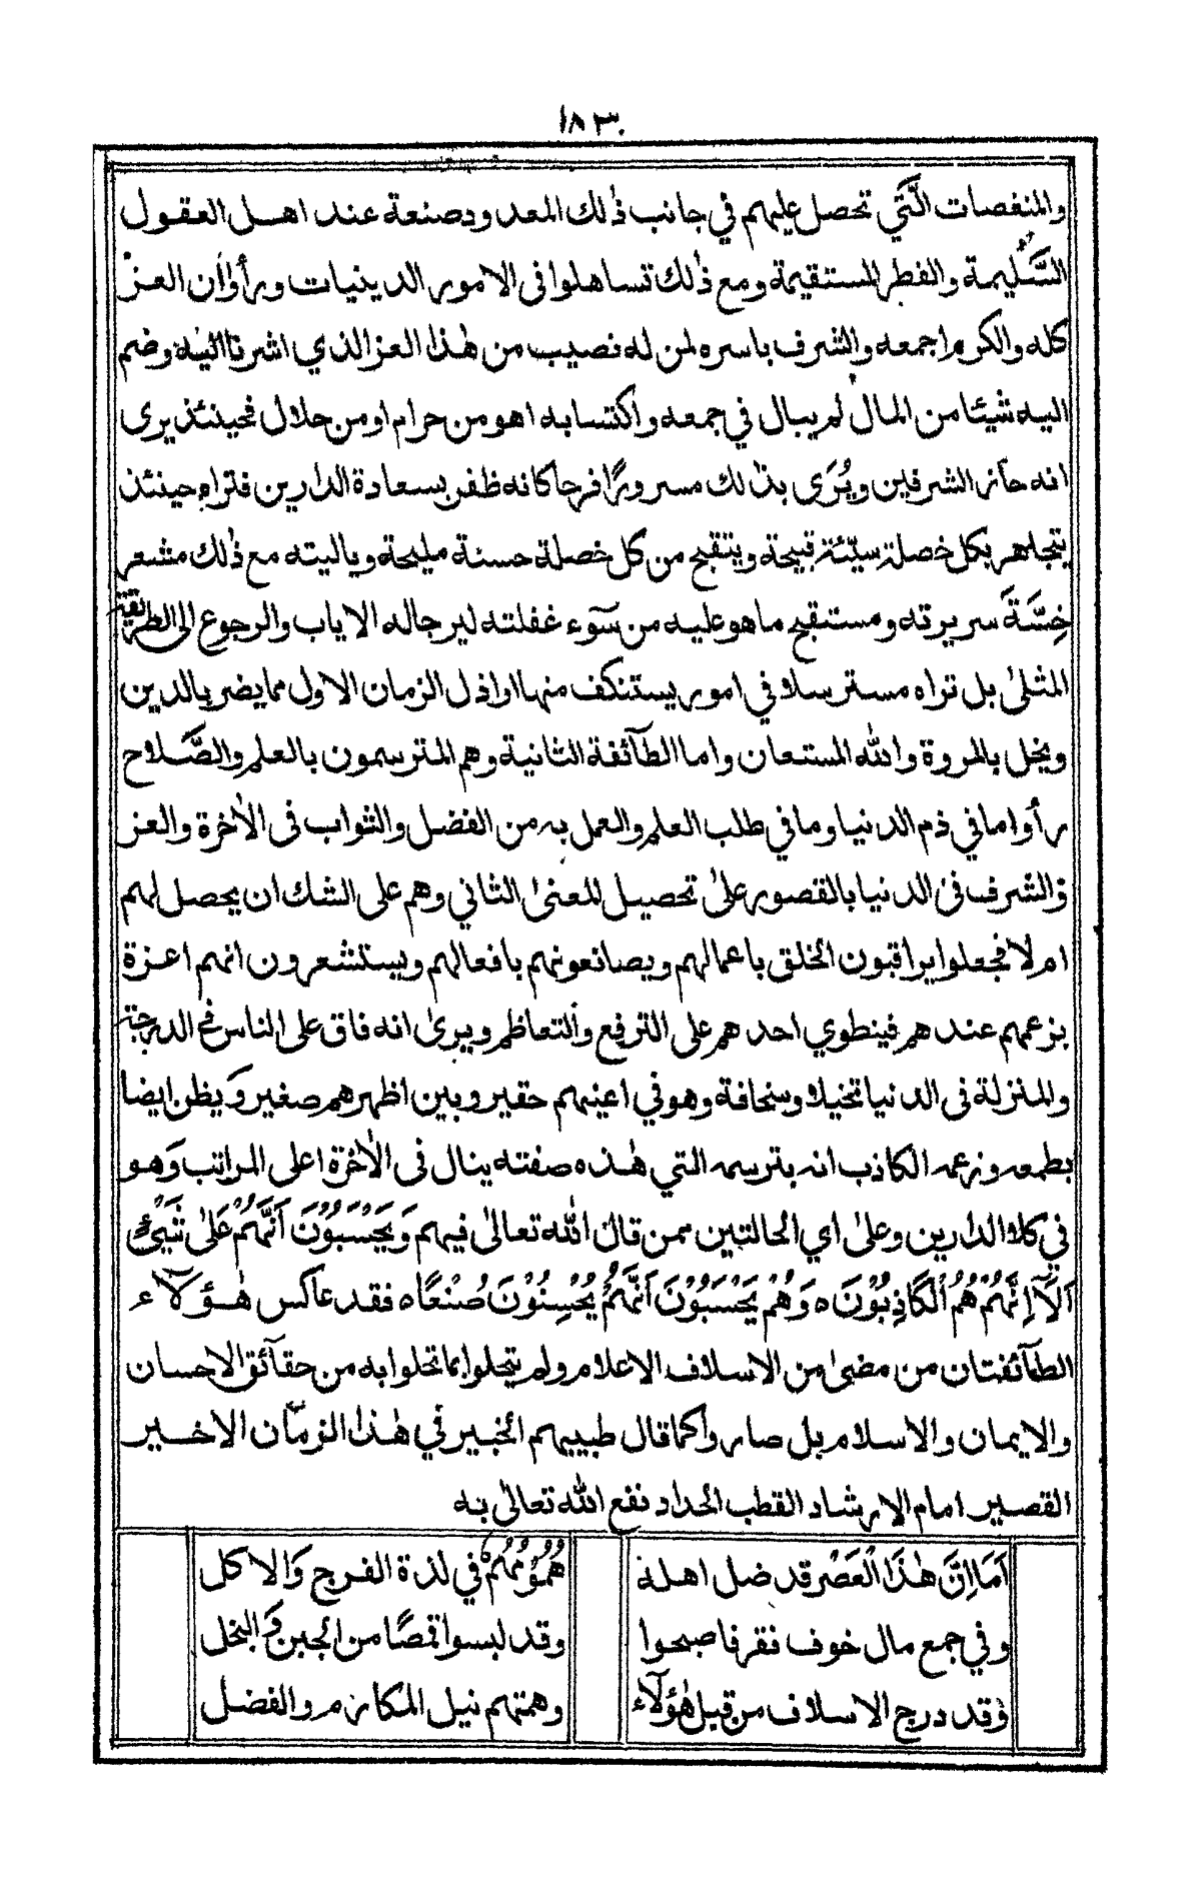 ١٨٣
والمنغصات الَّتي تحصل عليهم في جانب ذٰلك المعدودصنعة عند اهل العقول
السَّليمة والفطر المستقيمة ومع ذٰلك تساهلوا فى الامور الدينيات ورأوا أن العز
كله والكرم اجمعه والشرف باسره لمن له نصيب من هٰذا العز الذي اشرنا اليه وضم
اليه شيئا من المال لم يبال في جمعه واكتسابه اهو من حرام او من حلال فحينئذ يرى
انه حآئز الشرفين ويُرَى بذٰلك مسرورًا فرحا كانه ظفر بسعادة الدارين فتراه حينئذ
يتجاهر بكل خصلة سيّئة قبيحة ويتقبح من كل خصلة حسنة مليحة وياليته مع ذٰلك مشعر
خِسَّةَ سريرته ومستقبح ما هو عليه من سوٓء غفلته ليرجا له الاياب والرجوع الى الطريقة
المثلىٰ بل تراه مسترسلا في امور يستنكف منها اراذل الزمان الاول مما يضر بالدين
ويخل بالمروة والله المستعان واما الطآئفة الثانية وهم المترسمون بالعلم والصَّلاح
رأوا ما في ذم الدنيا وما في طلب العلم والعمل به من الفضل والثواب فى الاٰخرة والعز
والشرف فى الدنيا بالقصور علىٰ تحصيل المعنىٰ الثاني وهم على الشك ان يحصل لهم
ام لا فجعلوا يراقبون الخلق باعمالهم ويصانعونهم بافعالهم ويستشعرون انهم اعزة
بزعمهم عندهم فينطوي احدهم على الترفع والتعاظم ويرىٰ انه فاق على الناس في الدرجة
والمنزلة فى الدنيا تخيلا وسخافة وهو في اعينهم حقير وبين اظهرهم صغير وَيظن ايضا
بطمعه وزعمه الكاذب انه بترسمه التي هٰذه صفته ينال فى الاٰخرة اعلى المراتب وَهو
في كلا الدارين وعلىٰ اي الحالتين ممن قال الله تعالىٰ فيهم وَيَحْسَبُوْنَ اَنَّهُمْ عَلىٰ شَيْئٍ
اَلَآ اِنَّهُمْ هُمُ الْكَاذِبُوْنَ ه وَهُمْ يَحْسَبُوْنَ اَنَّهُمْ يُحْسِنُوْنَ صُنْعًا ه فقد عاكس هٰؤلآء
الطآئفتان من مضىٰ من الاسلاف الاعلام ولم يتحلوا بما تحلوا به من حقآئق الاحسان
والايمان والاسلام بل صاروا كما قال طبيبهم الخبير في هٰذا الزمّان الاخير
القصير امام الارشاد القطب الحداد نفع الله تعالىٰ به
اَمَا اِنَّ هٰذَا الْعَصْرَ قد ضل اهله هُمُوْمُهُمُ في لذة الفرج وَالاكل
وفي جمع مال خوف فقر فاصبحوا وقد لبسوا قمصًا من الجبن وَالبخل
وقد درج الاسلاف من قبل هٰؤلآء وهمتهم نيل المكارم والفضل